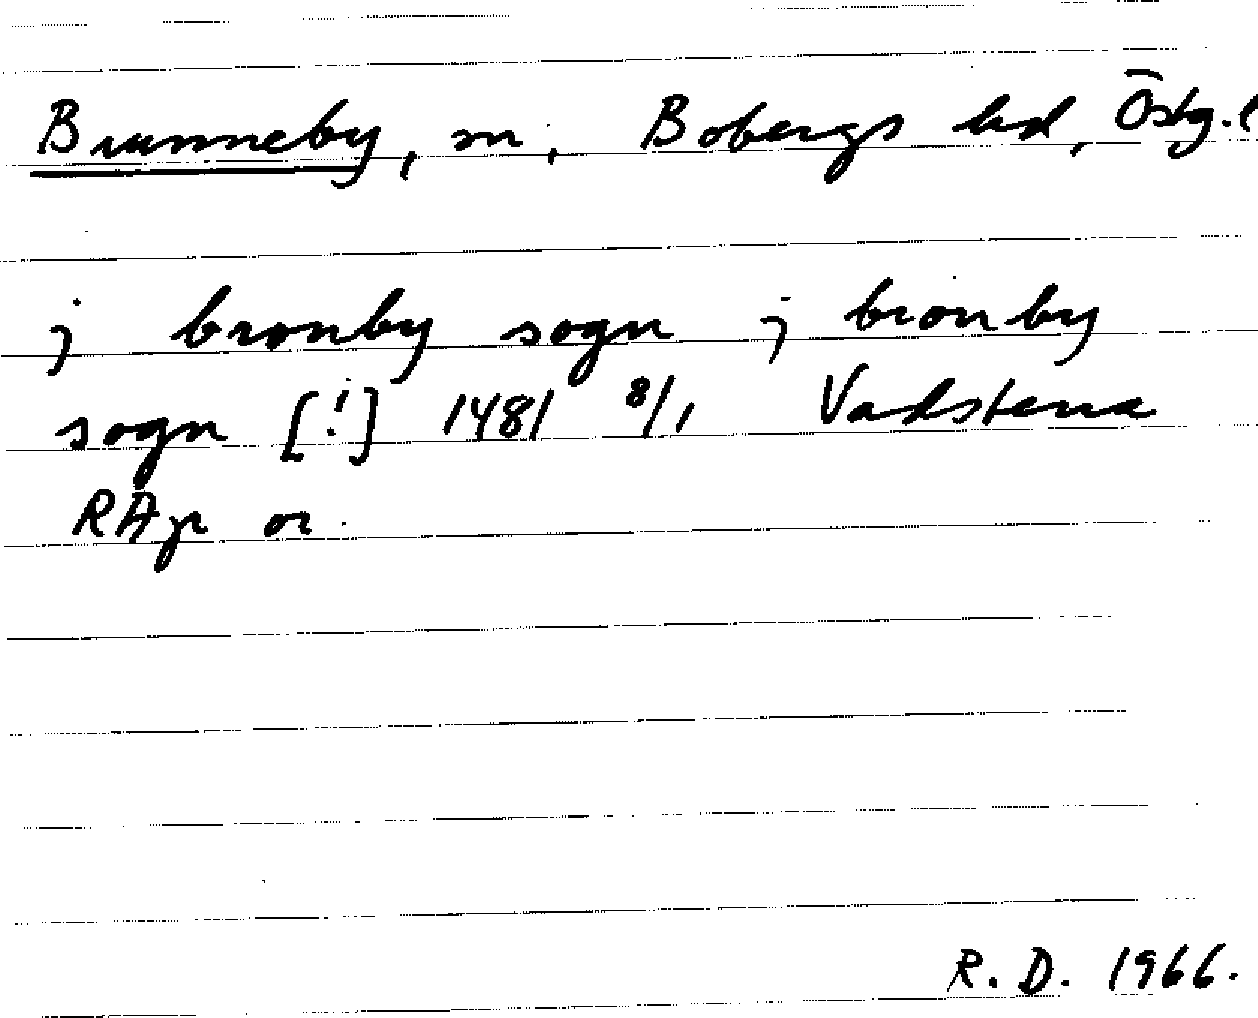 Brunneby, sn, Bobergs hd, Östg.l
j bronby sogn j bronby
sogn [!] 1481 8/1 Vadstena
RAp or.
R. D. 1966.